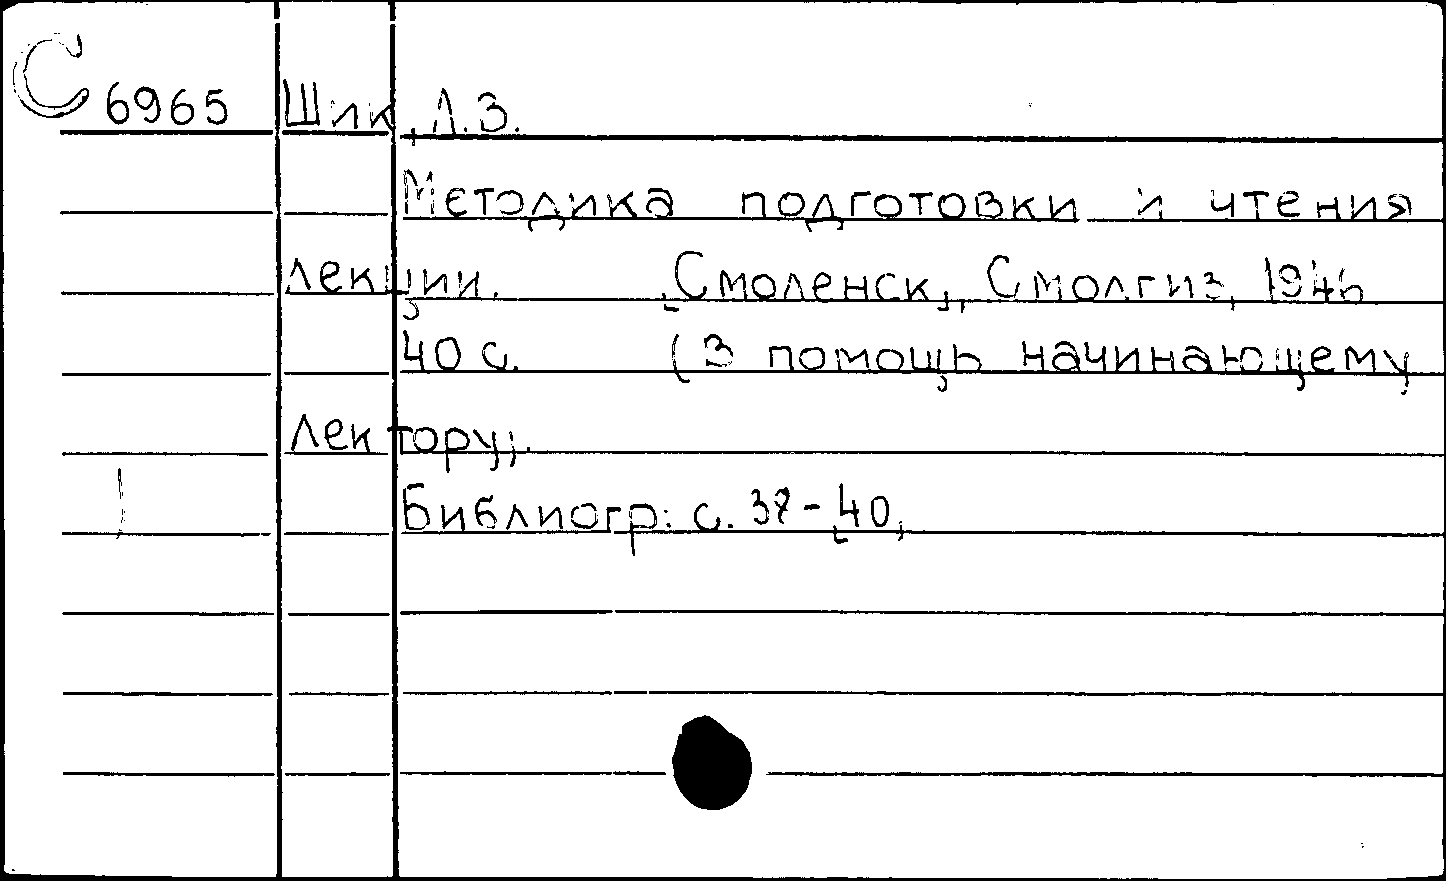 С 6965 Шик, А.З.
Методика подготовки и чтения
лекции. Смоленск, Смолгиз, 1946
40 с. (В помощь начинающему
лектору).
Библиогр: с. 38-40.